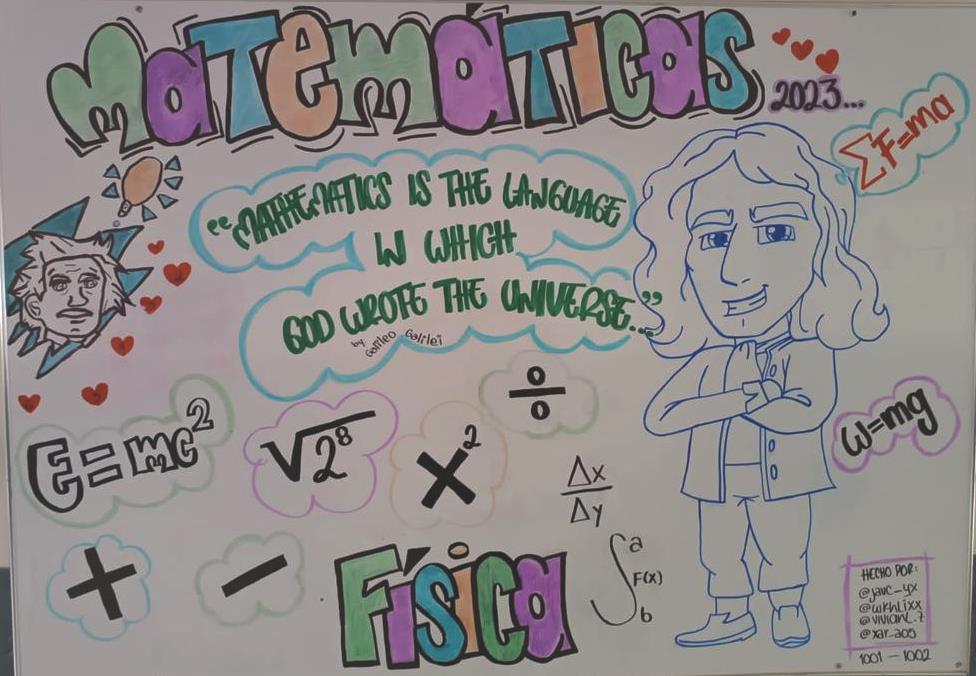 MATEMÁTICAS
2023...
ΣF=ma
"MATHEMATICS IS THE LANGUAGE
IN WHICH
GOD WROTE THE UNIVERSE..."
by
Galileo Galilei
E=mc²
√2⁸
x²
÷
Δx
Δy
w=mg
+
−
Física
∫ a
F(x)
b
HECHO POR:
@javc-yx
@wkhlixx
@vivianc.z
@xar_aos
1001 - 1002